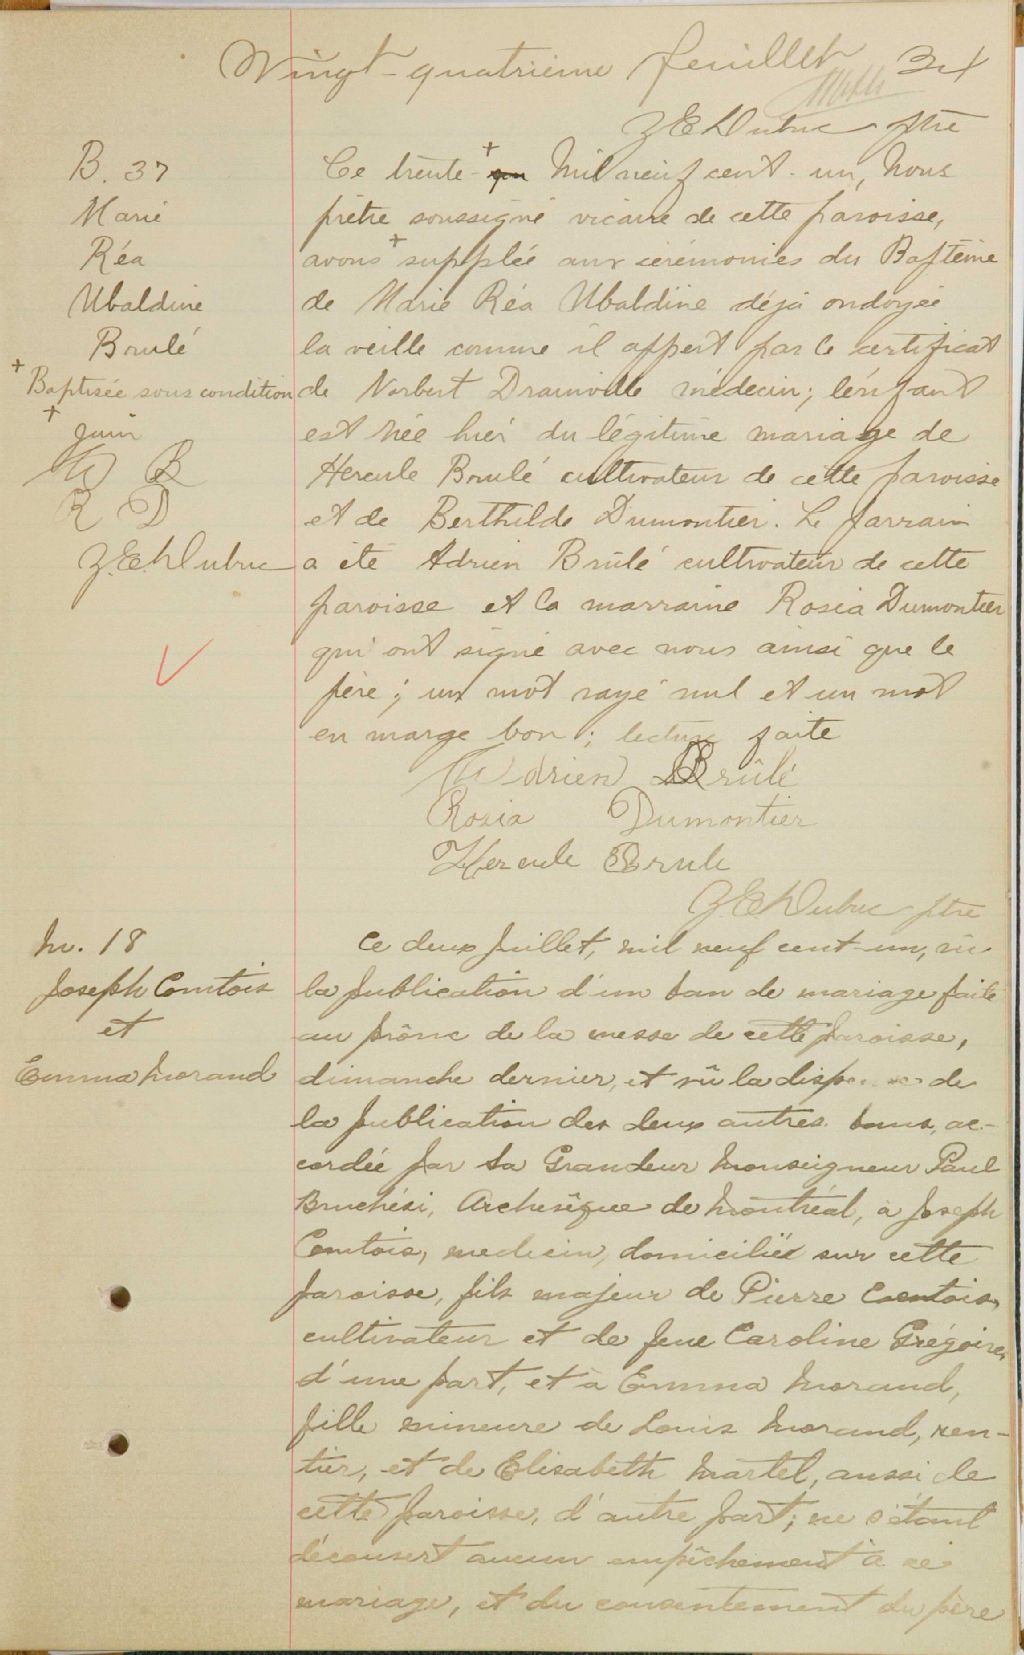 Vingt-quatrième feuillet 24
Z E H Dubuc ptre
B. 37
Marie
Réa
Ubaldine
Brulé
+ Baptisée sous condition
+ juin
A B
R D
Z.E.H Dubuc
Ce trente + Mil neuf cent-un, Nous
prêtre soussigné vicaire de cette paroisse,
avons + supplée aux cérémonies du Baptême
de Marie Réa Ubaldine déjà ondoyée
la veille comme il appert par le certificat
de Norbert Drainville médecin; l'enfant
est née hier du légitime mariage de
Hercule Brulé cultivateur de cette paroisse
et de Berthilde Dumontier. Le parrain
a été Adrien Brûlé cultivateur de cette
paroisse et la marraine Rosia Dumontier
qui ont signé avec nous ainsi que le
père; un mot rayé nul et un mot
en marge bon; lecture faite
Adrien Brûlé
Rosia Dumontier
Hercule Brule
Z E H Dubuc ptre
M. 18
Joseph Comtois
et
Emma Morand
Ce deux Juillet, mil neuf cent-un, vu
la publication d'un ban de mariage faite
au prône de la messe de cette paroisse,
dimanche dernier, et vû la dispense de
la publication des deux autres bans, ac-
cordée par Sa Grandeur Monseigneur Paul
Bruchési, Archevêque de Montréal, à Joseph
Comtois, medecin, domicilié sur cette
paroisse, fils majeur de Pierre Comtois,
cultivateur et de feue Caroline Grégoire,
d'une part, et à Emma Morand,
fille mineure de Louis Morand, ren-
tier, et de Elisabeth Martel, aussi de
cette paroisse, d'autre part; ne s'étant
découvert aucun empêchement à ce
mariage, et du consentement du père